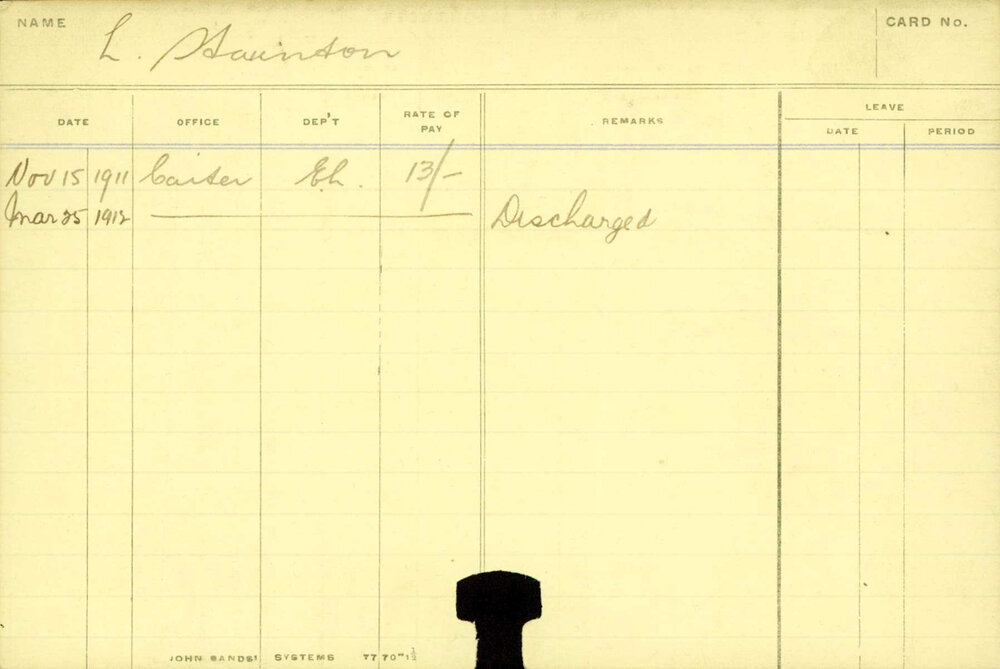 NAME
L. Staunton
CARD No.
DATE OFFICE DEP'T RATE OF PAY REMARKS LEAVE
DATE PERIOD
Nov 15 1911 Carter Eh. 13/-
Mar 25 1912 Discharged
JOHN SANDS' SYSTEMS 77 70"1½